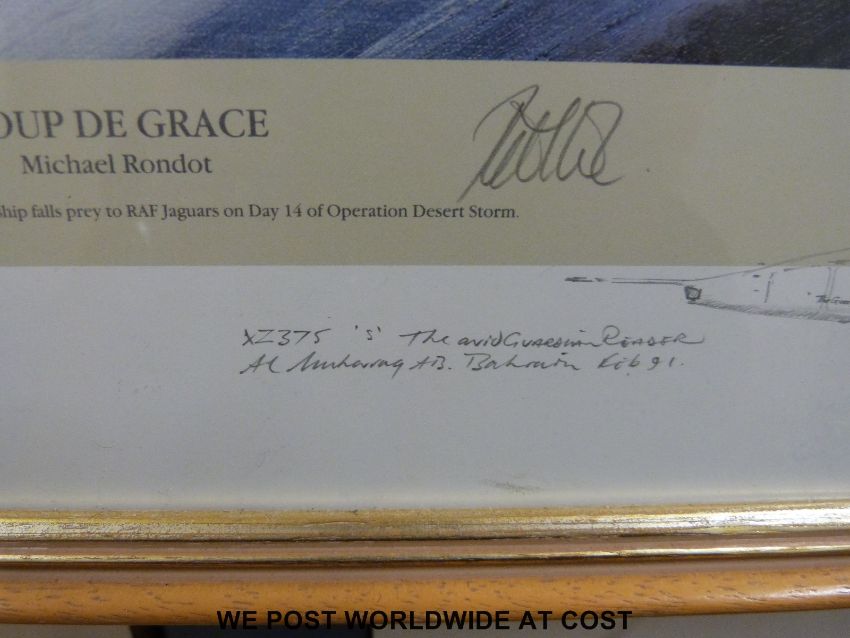 OUP DE GRACE
Michael Rondot
ship falls prey to RAF Jaguars on Day 14 of Operation Desert Storm.
XZ375 'S' The avid GUARDIAN READER
Al Muharraq AB. Bahrain Feb 91.
WE POST WORLDWIDE AT COST